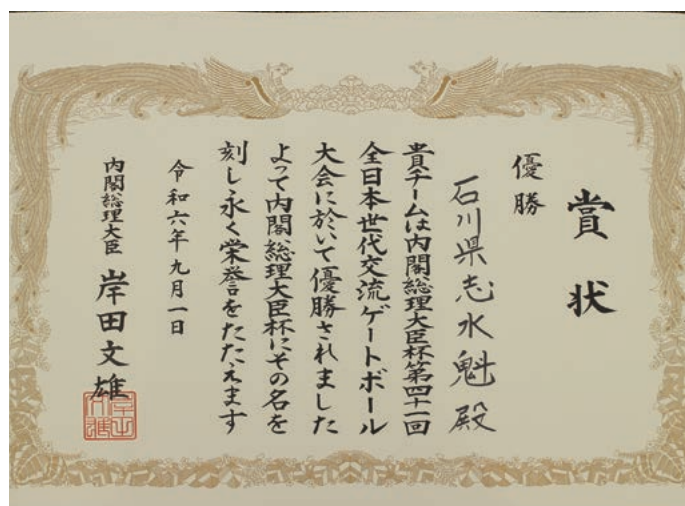 賞状
優勝
石川県志水魁殿
貴チームは内閣総理大臣杯第四十一回
全日本世代交流ゲートボール
大会に於いて優勝されました
よって内閣総理大臣杯にその名を
刻し永く栄誉をたたえます
令和六年九月一日
内閣総理大臣 岸田文雄